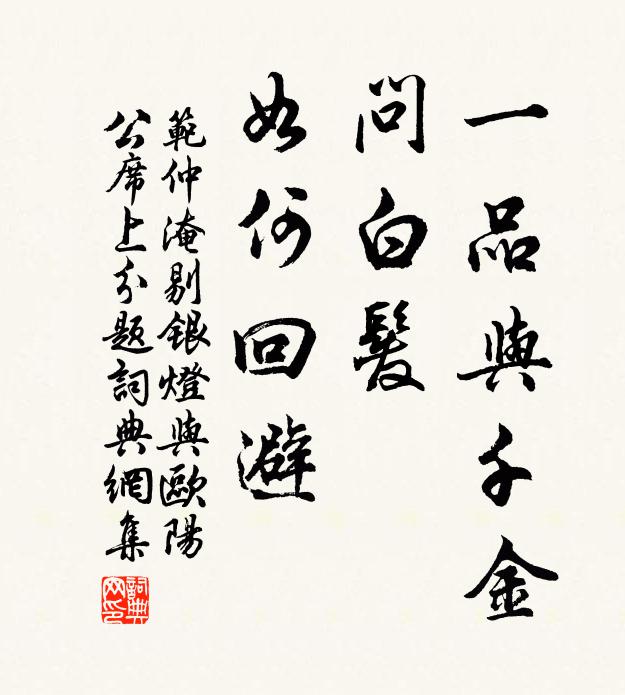 一品與千金
問白髮
如何回避
範仲淹剔銀燈與歐陽
公席上分題詞典網集
詞典網印